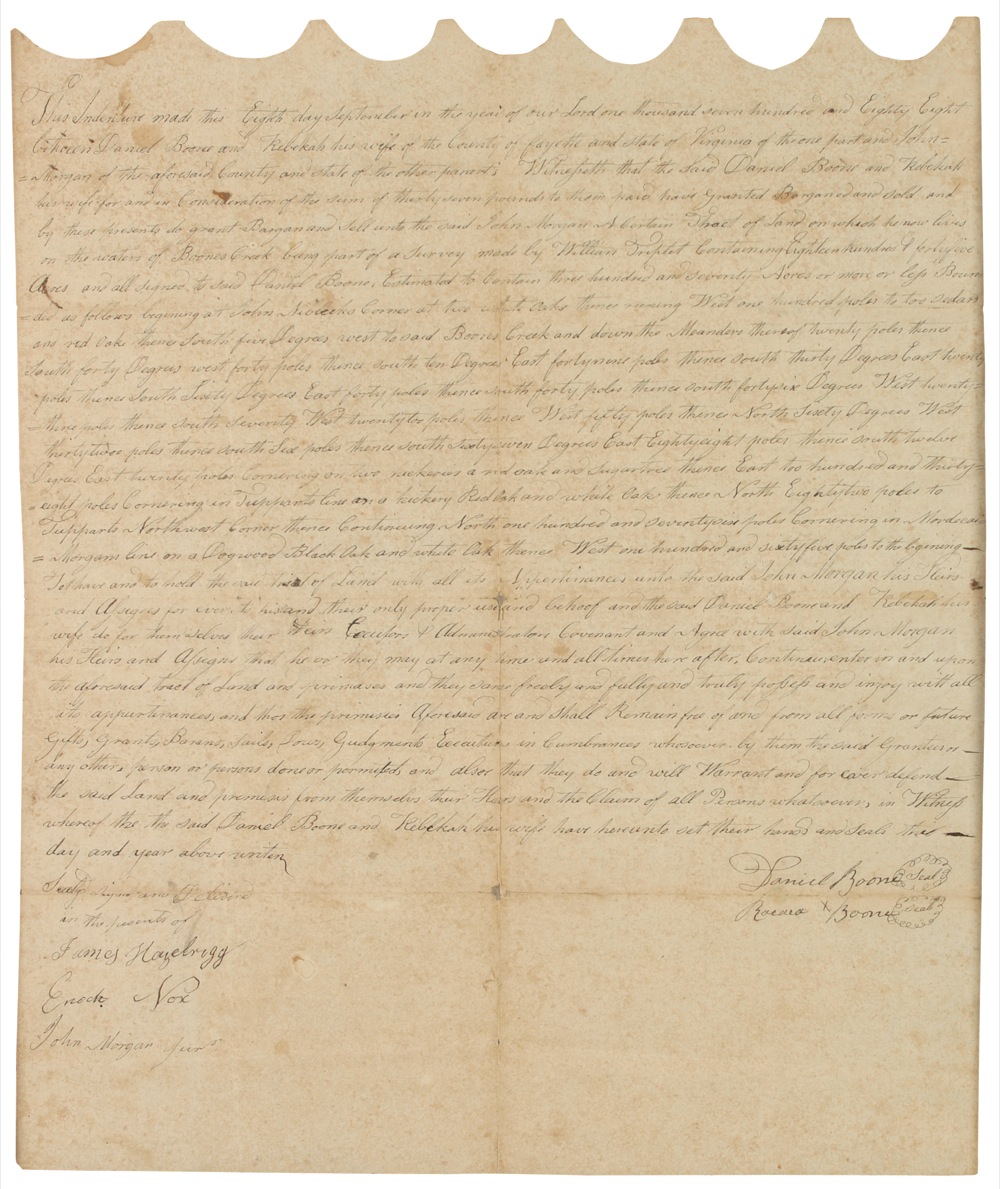 This Indenture made this Eighth day September in the year of our Lord one thousand seven hundred and Eighty Eight
between Daniel Boone and Rebekah his wife of the County of fayette and State of Virginia of the one part and John=
=Morgan of the aforesaid County and state of the other panarts Witneseth that the said Daniel Boone and Rebekah
his wife for and in Consideration of the sum of thirty seven pounds to them paid have Granted Barganed and sold and
by these presents do grant Bargan and Sell unto the said John Morgan A Certain Thract of Land on which he now lives
on the waters of Boones Creek being part of a Survey made by William Triplet Containing Eighteen hundred & fortyfive
Acres and all signed to said Daniel Boone, Estimated to Contain three hundred and seventy Acres or more or less Boun
=ded as follows begening at John Corner at two white oaks thenc runing West one hundred poles to too sedars
and red Oak thence South five Degrees west to said Boones Creek and down the Meanders thereof twenty poles thence
South forty Degrees west forty poles thence south ten Degrees East fortynine poles thence south thirty Degrees East twenty
poles thence South Sixty Degrees East forty poles thence south forty poles thence south fortysix Degrees West twenty=
=three poles thence south seventy West twentytoo poles thence West fifty poles thence North Sixty Degrees West
thirtytwoo poles thence south Six poles thence south Sixtyseven Degrees East Eightyeight poles thence south twelve
Degrees East twenty poles Cornering on two a red oak and Sugartree thence East too hundred and thirty=
=eight poles Cornering in Tupparts line on a hickery Red oak and white Oak thence North Eightytwo poles to
Tupparts Northwest Corner thence Continueing North one hundred and seventysix poles Cornering in Mordecai
=Morgans line on a Dogwood Black Oak and white Oak thence West one hundred and sixtyfive poles to the begening—
To have and to hold the said tract of Land with all its Appertinances unto the said John Morgan his Heirs
and Assigns for ever to his and their only proper use and behoof and the said Daniel Boone and Rebekah his
wife do for themselves their Heirs Executors & Administrators Covenant and Agree with said John Morgan
his Heirs and Assigns that he or they may at any time and all times here after, Continue enter in and upon
the aforesaid tract of Land and primases and they same freely and fully and truly possess and injoy with all
its appurtinances, and thar the premisies Aforesaid are and Shall Remain free of and from all forms or future
Gifts, Grants, Sails, Gudgments Executions in Cumbrances whosoever by them the said Granteis or—
any other person or persons done or permited, and alsoe that they do and will Warrant and for ever defend—
the said Land and premisis from themselvs their Heirs and the Claim of all Persons whatsoever, in Witness
whereof the the said Daniel Boone and Rebekah his wife have hereunto set their hands and Seals this—
day and year above writen
Seald signd and Deliverd
in the presents of
Daniel Boone Seal
Boone Seal
James Hazelrigg
Enoch Nox
John Morgan Junr